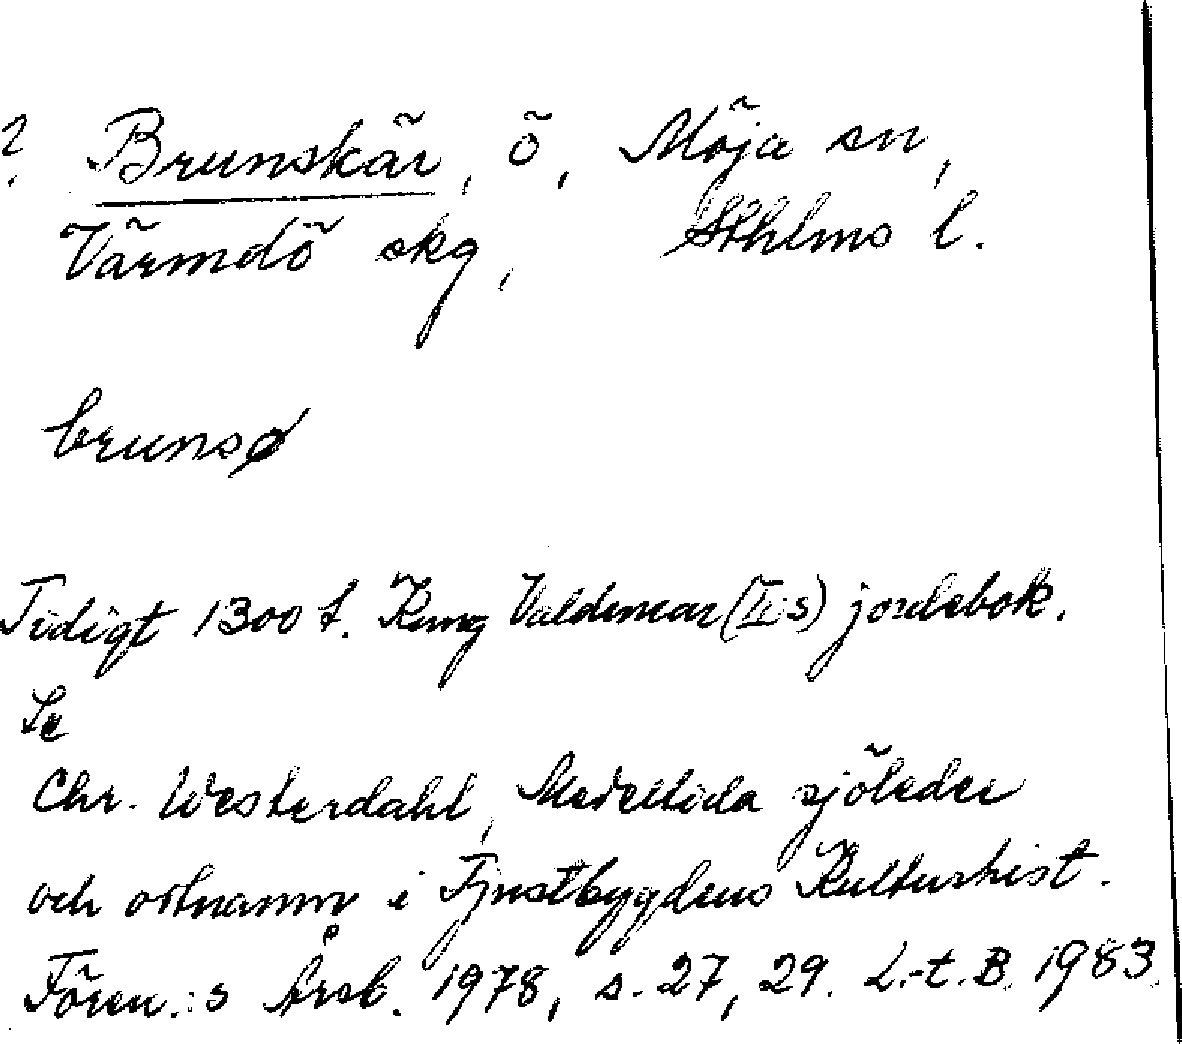 ? Brunskär, ö, Möja sn,
Värmdö skg, Sthlms l.
brunsø
Tidigt 1300 t. Kung Valdemar (II:s) jordebok.
Se
Chr. Westerdahl, Medeltida sjöleder
och ortnamn i Tjustbygdens Kulturhist.
Fören.:s Årsb. 1978, s. 27, 29. L-t. B. 1983.